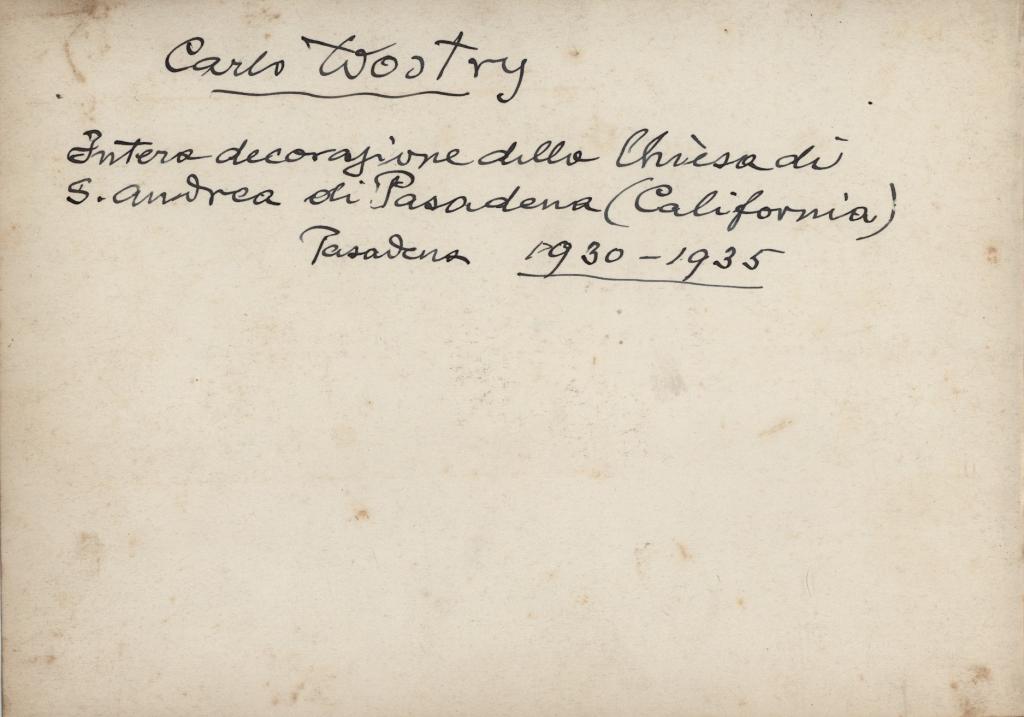 Carlo Wostry
Intera decorazione della Chiesa di
S. Andrea di Pasadena (California)
Pasadena 1930 - 1935